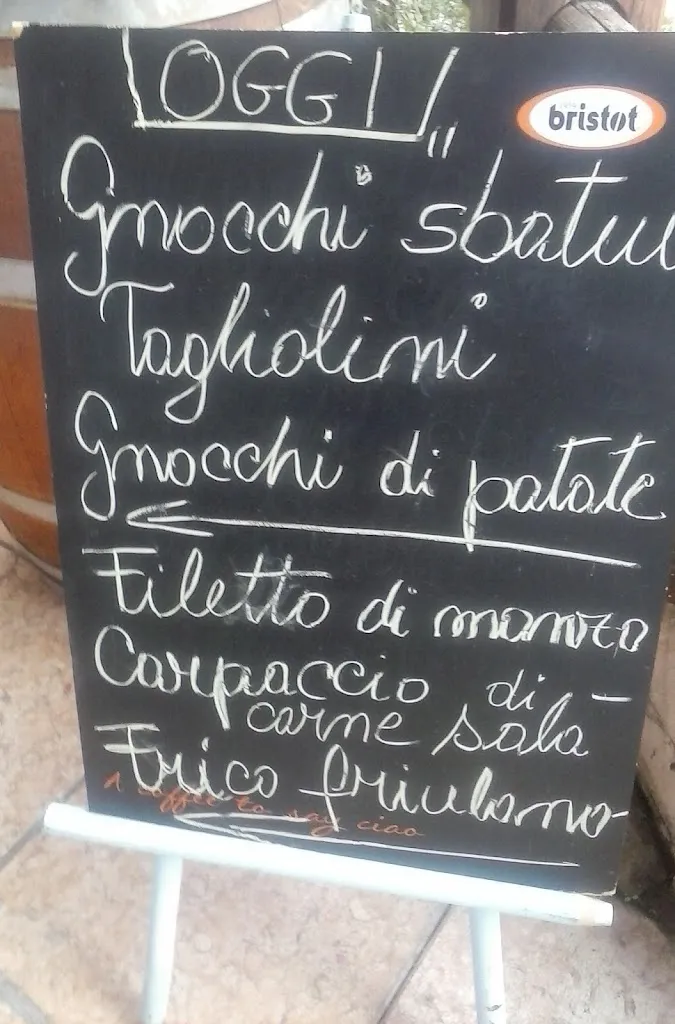 OGGI
bristot
Gnocchi sbatui
Tagliolini
Gnocchi di patate
Filetto di manzo
Carpaccio di
carne sala
Frico friulano
A coffee to say ciao